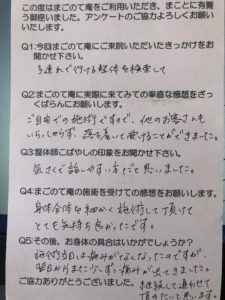 この度はまごのて庵をご利用いただき、まことに有難う御座いました。アンケートのご協力よろしくお願いいたします。
Q1:今回まごのて庵にご来院いただいたきっかけをお聞かせ下さい。
子連れで行ける整体を検索して
Q2:まごのて庵に実際に来てみての率直な感想をざっくばらんにお願いします。
ご自宅での施術ですが、他のお客さんも
いらっしゃらず、落ち着いて受けることができました。
Q3:整体師こばやしの印象をお聞かせ下さい。
気さくで話しやすい方だと思いました。
Q4:まごのて庵の施術を受けての感想をお願いします。
身体全体を細かく施術して頂けて
とても気持ち良かったです。
Q5:その後、お身体の具合はいかがでしょうか?
施術当日は痛みがなくなったのですが、
翌日からまた少しずつ痛みが出てきました。
ご協力ありがとうございました。
継続して通わせて
頂きたいと思います。